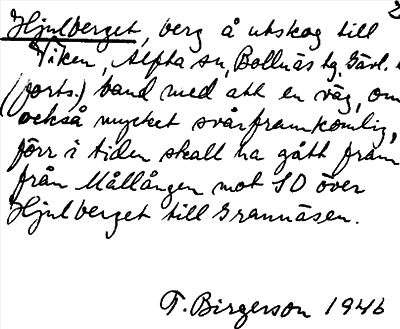 2
Hjulberget, berg å utskog till
Viken, Alfta sn, Bollnäs tg. Gävl. l
(forts.) band med att en väg, om
också mycket svårframkomlig,
förr i tiden skall ha gått fram
från Mållången mot SO över
Hjulberget till Grannäsen.
T. Birgerson 1946